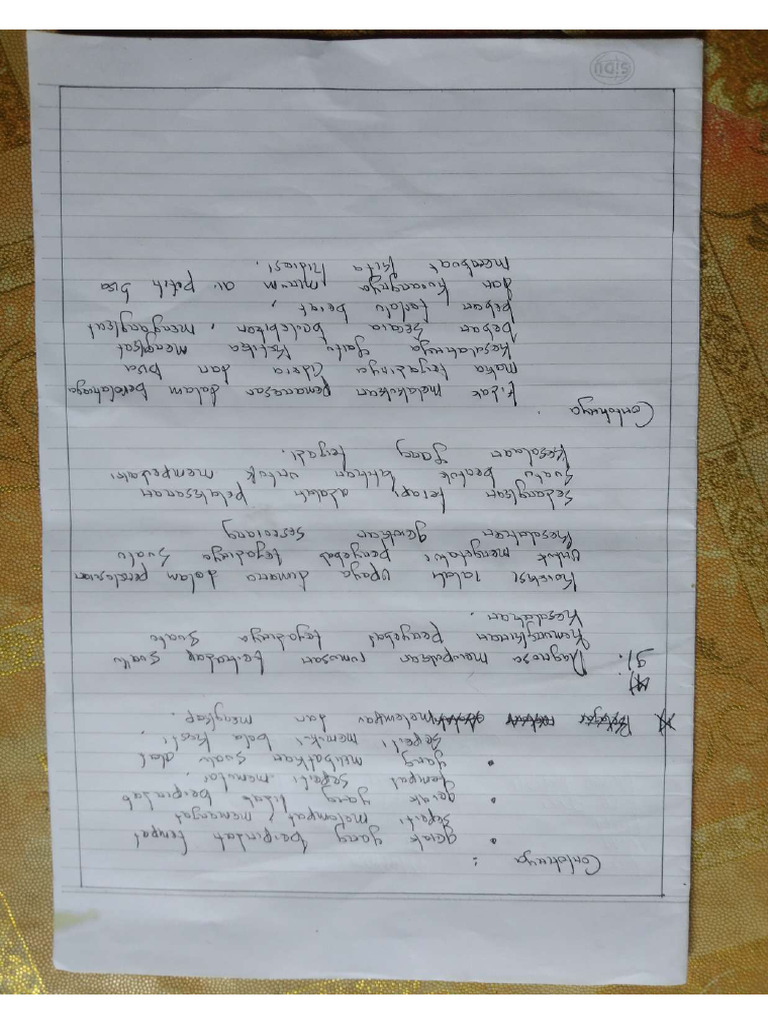 Contohnya :
• gerak yang berpindah tempat
seperti melompat, memanjat
• gerak yang tidak berpindah
tempat seperti menulai
• yang melibatkan suatu alat
seperti memukul bola kasti
melempar dan mengkap.
9). Diagnosa merupakan rumusan terhadap suatu
Kemungkinan Penyebab terjadinya suatu
Kesalahan.
Koreksi ialah upaya dimana dalam
untuk mengetahui penyebab terjadinya suatu
Kesalahan gerakan seseorang
Sedangkan terapi adalah pelaksanan
Suatu bentuk latihan untuk memperbaiki
Kesalaan yang terjadi.
Contohnya.
tidak melakukan pemanasan dalam berolahraga
maka terjadinya cidera dan bisa
Kesalahnya yaitu ketika mengangkat
beban secara berlebihan, mengangkat
beban terlalu berat,
dan kurangnya minum air putih bisa
membuat kita
SIDU